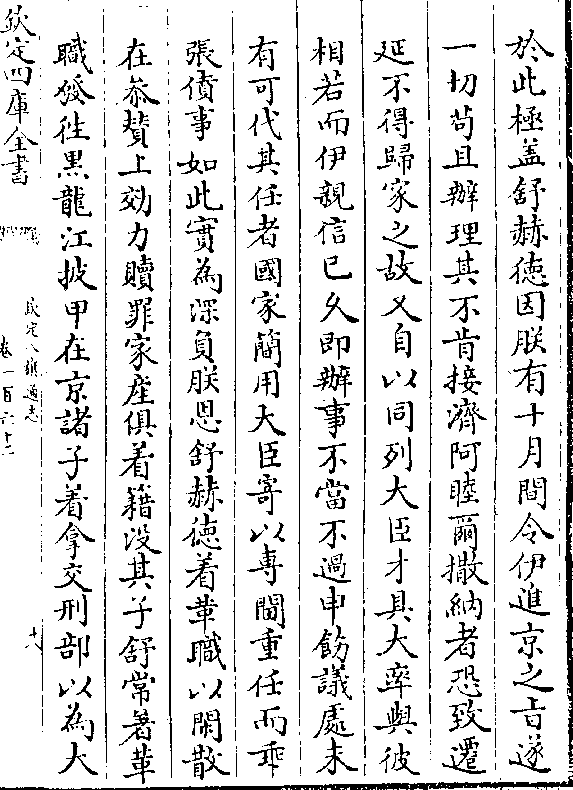 於此極盖舒赫徳因朕有十月間令伊進京之㫖遂
一切苟且辦理其不肯接濟阿睦爾撒納者恐致遷
延不得歸家之故乂自以同列大臣才具大率與彼
相若而伊親信已乆即辦事不當不過申飭議處未
有可代其任者國家簡用大臣寄以專閫重任而乖
張僨事如此實為深負朕恩舒赫徳着革職以閑散
在叅贊上効力贖罪家産俱着籍没其子舒常著革
職發徃黒龍江披甲在京諸子着拿交刑部以為大
欽定四庫全書
欽定八旗通志
卷一百六十二
十八